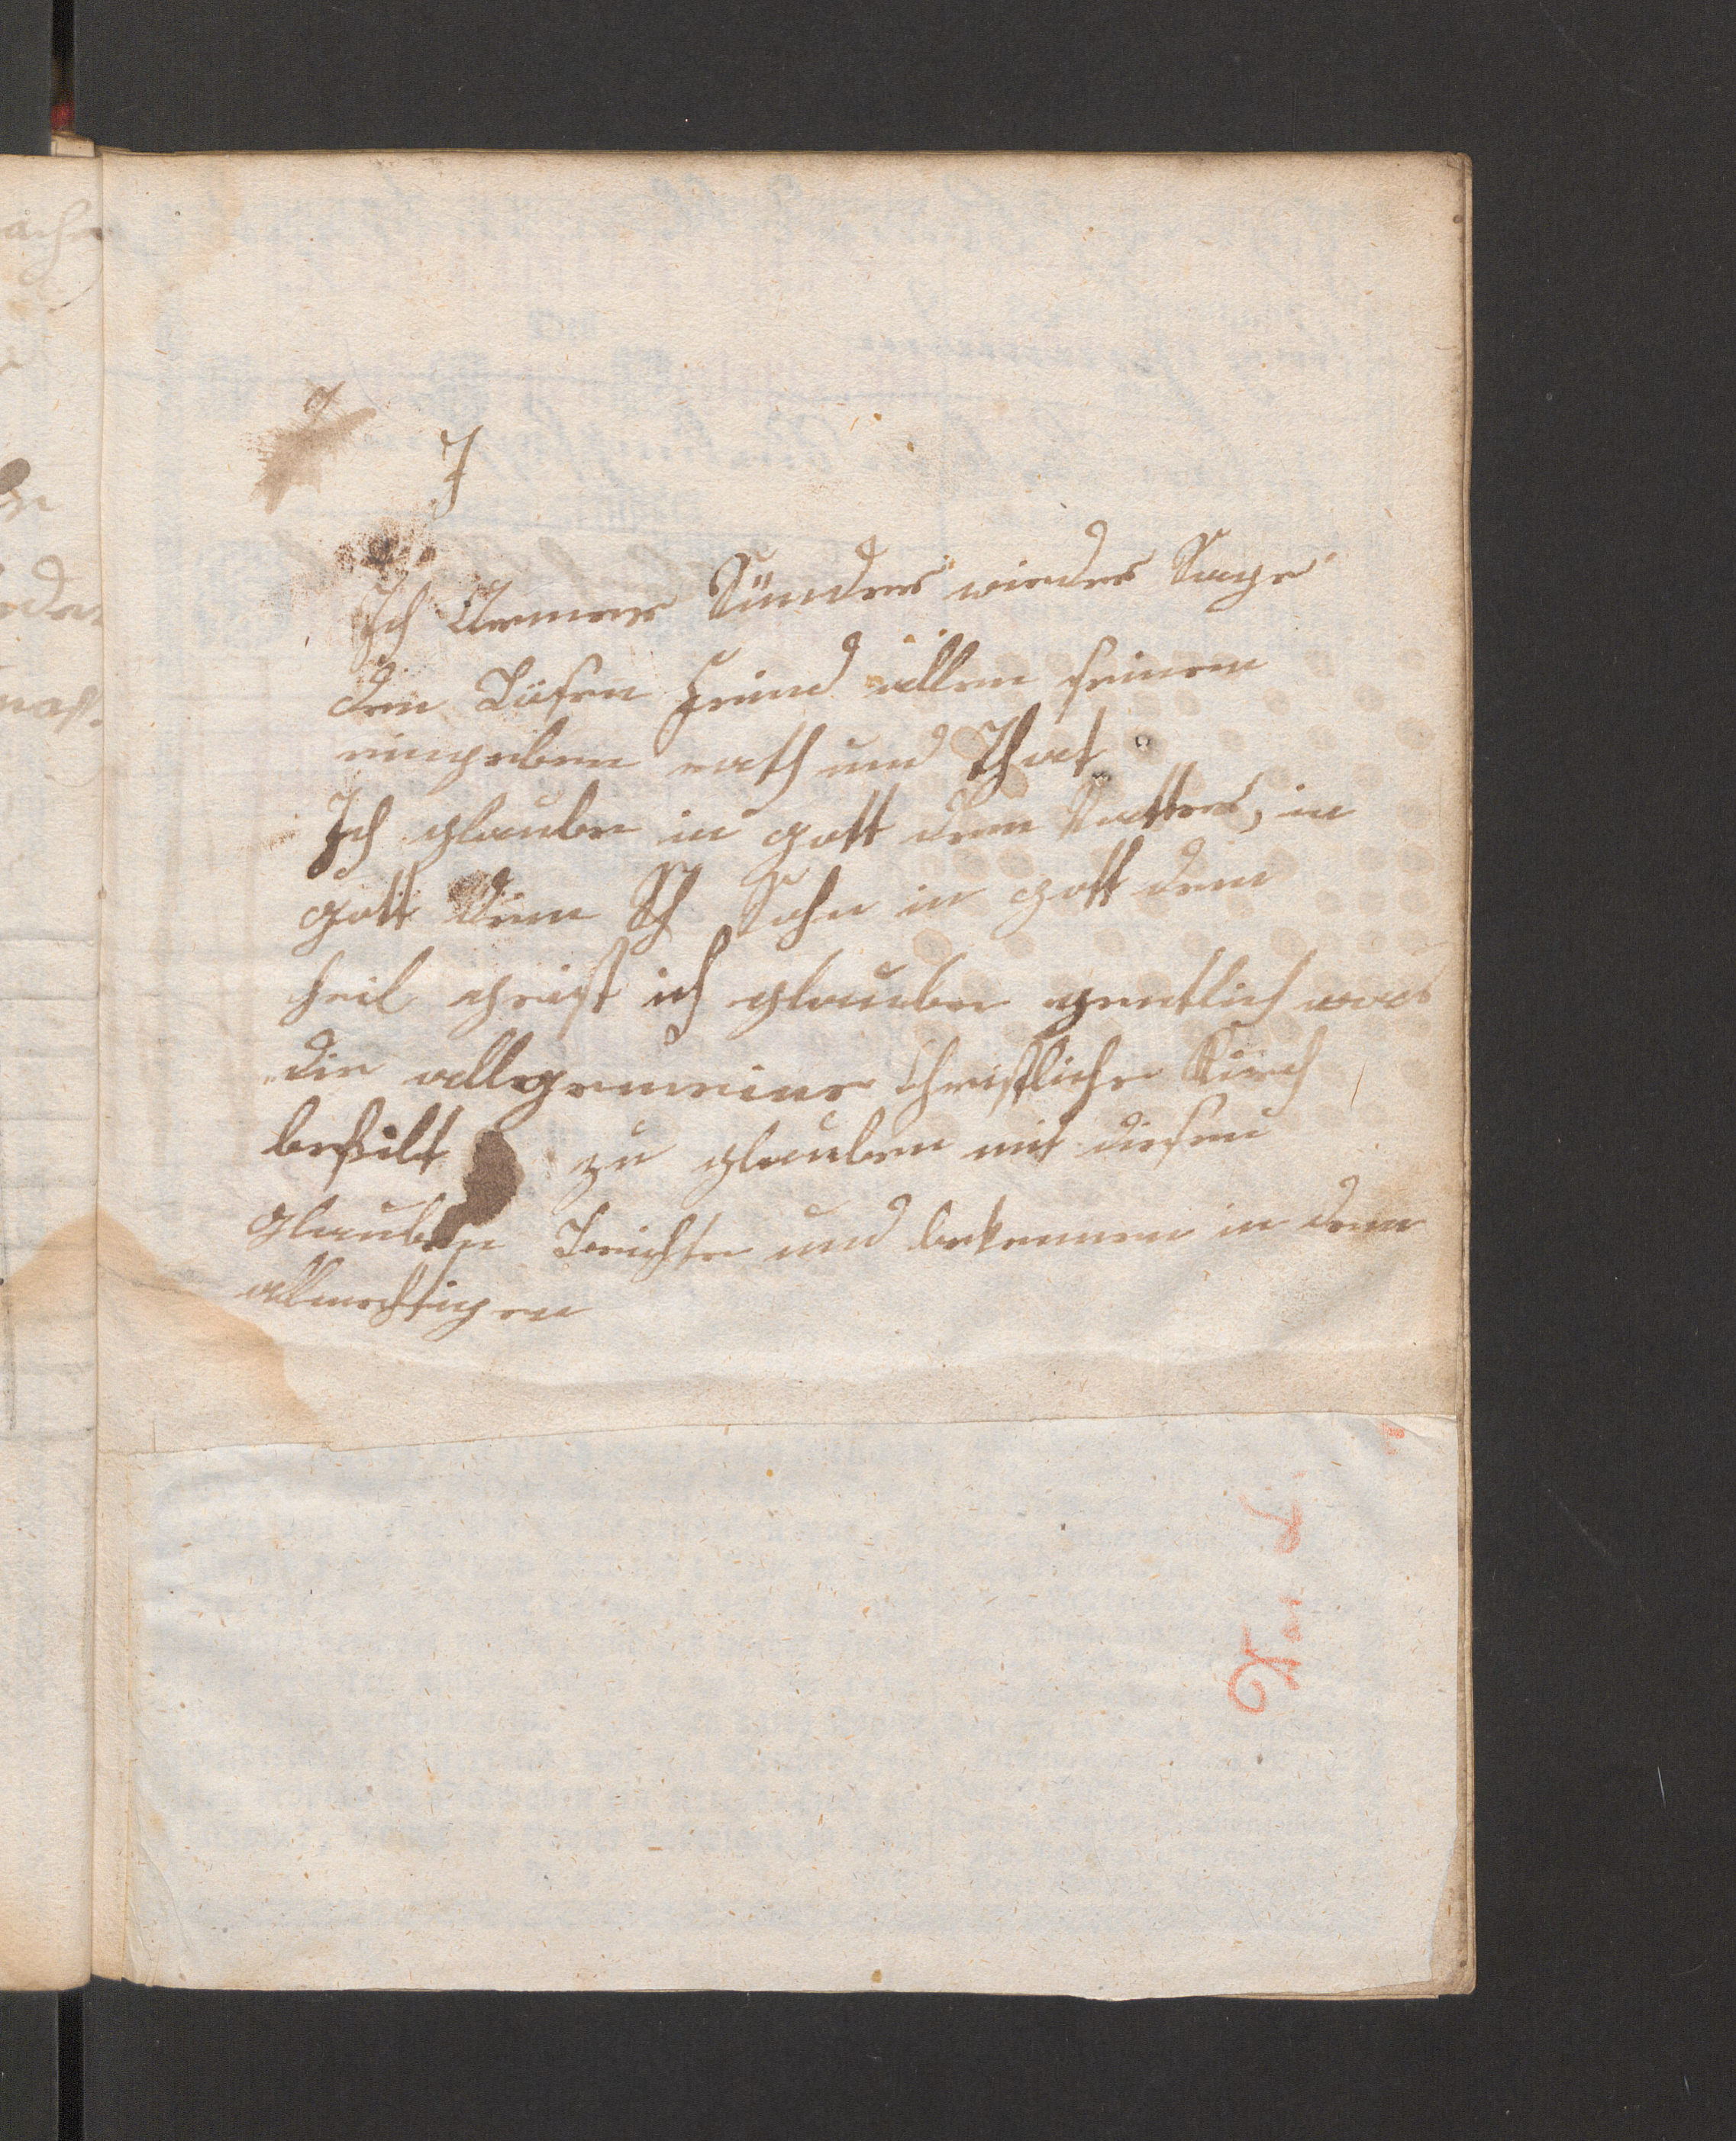 J
Ich Armer Sünder wieder Sage
dem Bösen Feind allem seinem
eingeben rath und That
Ich glaube in gott dem Vatter, in
gott dem Sh Sohn in gott dem
heil geist ich glaube gentlich was
die allgemeine Christliche Kirch
befihlt zu glauben mit diesem
glauben Beichte und bekenne in dem
allmechtigen